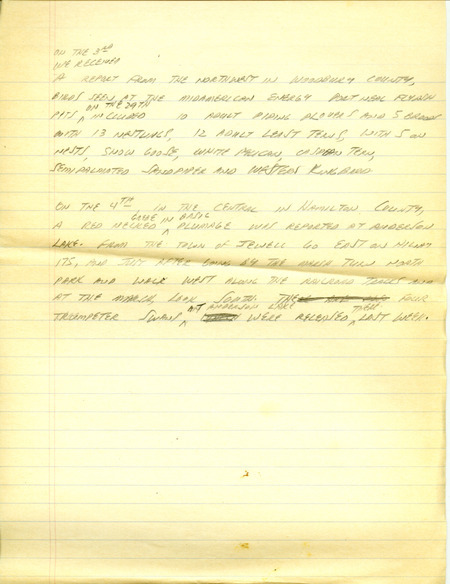 ON THE 3RD
WE RECEIVED
A REPORT FROM THE NORTHWEST IN WOODBURY COUNTY,
BIRDS SEEN AT THE MIDAMERICAN ENERGY PORT NEAL FLYASH
ON THE 29TH
PITS INCLUDED 10 ADULT PIPING PLOVERS AND 5 BROODS
WITH 13 NESTLINGS, 12 ADULT LEAST TERNS, WITH 5 ON
NESTS, SNOW GOOSE, WHITE PELICAN, CASPIAN TERN,
SEMIPALMATED SANDPIPER AND WESTERN KINGBIRD
ON THE 4TH IN THE CENTRAL IN HAMILTON COUNTY,
GREBE IN BASIC
A RED NECKED PLUMAGE WAS REPORTED AT ANDERSON
LAKE. FROM THE TOWN OF JEWELL GO EAST ON HIGHWAY
175, AND JUST AFTER GOING BY THE AREA TURN NORTH
PARK AND WALK WEST ALONG THE RAILROAD TRACKS AND
AT THE MARSH LOOK SOUTH. FOUR
AT ANDERSON LAKE THERE
TRUMPETER SWANS WERE RELEASED LAST WEEK.